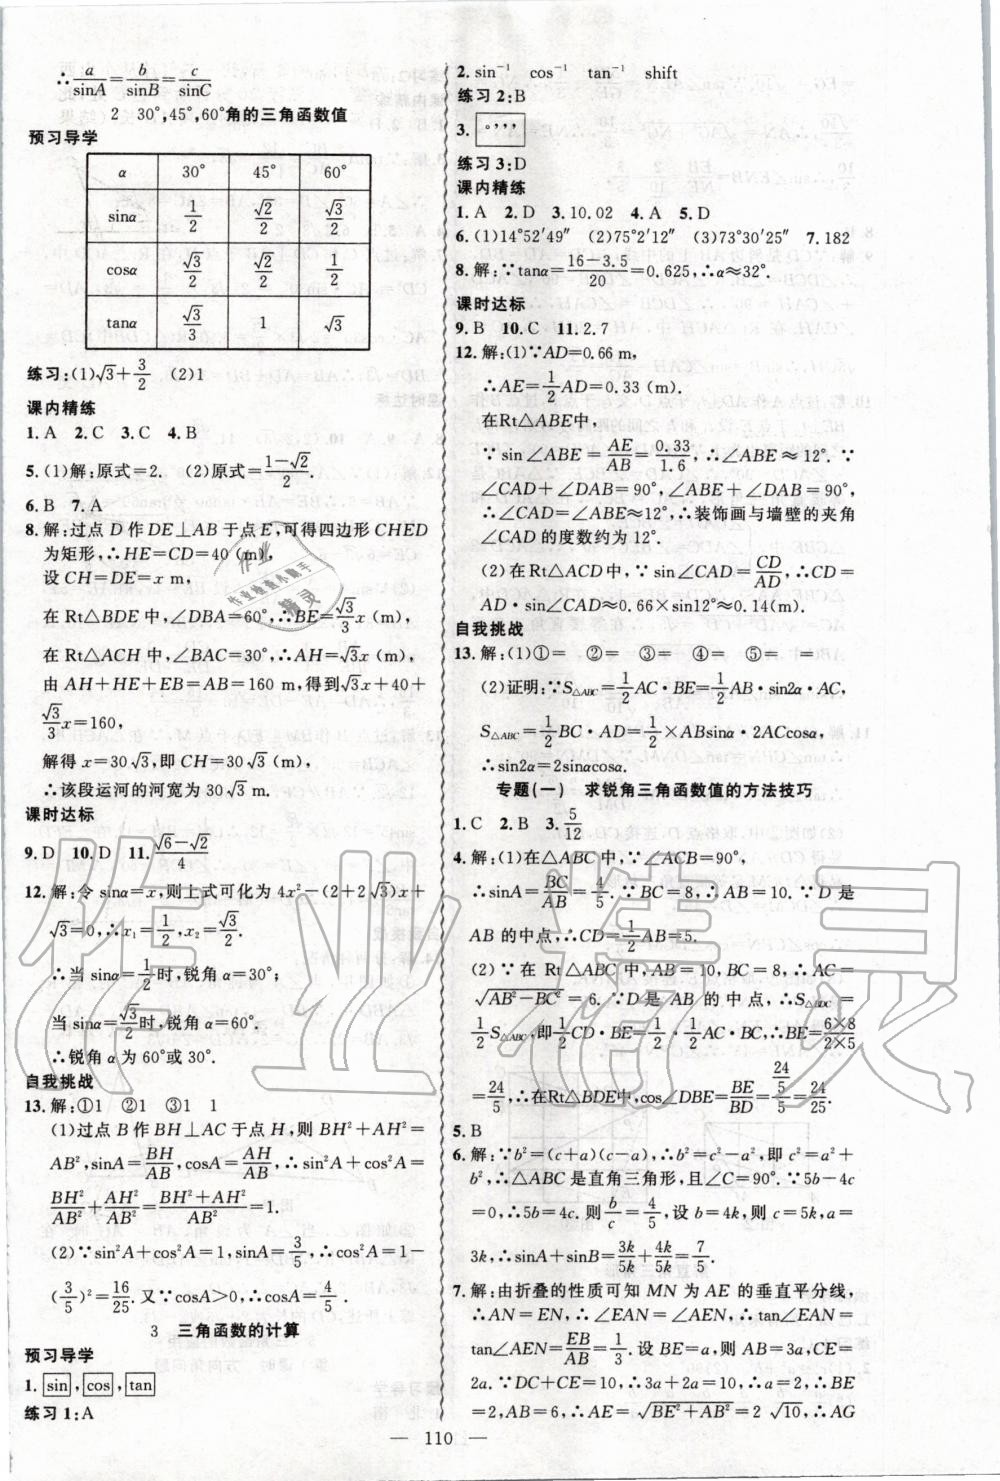 ∴a/sinA=b/sinB=c/sinC
2 30°,45°,60°角的三角函数值
预习导学
α 30° 45° 60°
sinα 1/2 √2/2 √3/2
cosα √3/2 √2/2 1/2
tanα √3/3 1 √3
练习:(1)√3+3/2 (2)1
课内精练
1. A 2. C 3. C 4. B
5. (1)解:原式=2. (2)原式=(1-√2)/2.
6. B 7. A
8. 解:过点 D 作 DE⊥AB 于点 E,可得四边形 CHED
为矩形,∴HE=CD=40 (m),
设 CH=DE=x m,
在 Rt△BDE 中,∠DBA=60°,∴BE=√3/3x(m),
在 Rt△ACH 中,∠BAC=30°,∴AH=√3x(m),
由 AH+HE+EB=AB=160 m,得到√3x+40+
√3/3x=160,
解得 x=30√3,即 CH=30√3 (m),
∴该段运河的河宽为 30√3 m.
课时达标
9. D 10. D 11. (√6-√2)/4
12. 解:令 sinα=x,则上式可化为 4x²-(2+2√3)x+
√3=0,∴x₁=1/2,x₂=√3/2.
∴当 sinα=1/2时,锐角 α=30°;
当 sinα=√3/2时,锐角 α=60°.
∴锐角 α 为 60°或 30°.
自我挑战
13. 解:①1 ②1 ③1 1
(1)过点 B 作 BH⊥AC 于点 H,则 BH²+AH²=
AB²,sinA=BH/AB,cosA=AH/AB,∴sin²A+cos²A=
BH²/AB²+AH²/AB²=(BH²+AH²)/AB²=1.
(2)∵sin²A+cos²A=1,sinA=3/5,∴cos²A=1-
(3/5)²=16/25. 又∵cosA>0,∴cosA=4/5.
3 三角函数的计算
预习导学
1. sin,cos,tan
练习 1:A
2. sin⁻¹ cos⁻¹ tan⁻¹ shift
练习 2:B
3. °′″
练习 3:D
课内精练
1. A 2. D 3. 10.02 4. A 5. D
6. (1)14°52′49″ (2)75°2′12″ (3)73°30′25″ 7. 182
8. 解:∵tanα=(16-3.5)/20=0.625,∴α≈32°.
课时达标
9. B 10. C 11. 2.7
12. 解:(1)∵AD=0.66 m,
∴AE=1/2AD=0.33 (m).
在Rt△ABE中,
∵ sin∠ABE=AE/AB=0.33/1.6,∴∠ABE≈12°. ∵
∠CAD+∠DAB=90°,∠ABE+∠DAB=90°,
∴∠CAD=∠ABE≈12°,∴装饰画与墙壁的夹角
∠CAD 的度数约为 12°.
(2)在 Rt△ACD 中,∵sin∠CAD=CD/AD,∴CD=
AD·sin∠CAD≈0.66×sin12°≈0.14(m).
自我挑战
13. 解:(1)①= ②= ③= ④= ⑤= =
(2)证明:∵S△ABC=1/2AC·BE=1/2AB·sin2α·AC,
S△ABC=1/2BC·AD=1/2×ABsinα·2ACcosα,
∴sin2α=2sinαcosα.
专题(一) 求锐角三角函数值的方法技巧
1. C 2. B 3. 5/12
4. 解:(1)在△ABC 中,∵∠ACB=90°,
∴sinA=BC/AB=4/5. ∵BC=8,∴AB=10. ∵D 是
AB 的中点,∴CD=1/2AB=5.
(2)∵在 Rt△ABC 中,AB=10,BC=8,∴AC=
√(AB²-BC²)=6. ∵D 是 AB 的中点,∴S△BDC=
1/2S△ABC,即1/2CD·BE=1/2·1/2AC·BC,∴BE=(6×8)/(2×5)
=24/5,∴在Rt△BDE中,cos∠DBE=BE/BD=(24/5)/5=24/25.
5. B
6. 解:∵b²=(c+a)(c-a),∴b²=c²-a²,即 c²=a²+
b²,∴△ABC 是直角三角形,且∠C=90°. ∵5b-4c
=0,∴5b=4c. 则b/c=4/5,设 b=4k,则 c=5k,∴a=
3k,∴sinA+sinB=3k/5k+4k/5k=7/5.
7. 解:由折叠的性质可知 MN 为 AE 的垂直平分线,
∴AN=EN,∴∠EAN=∠AEN,∴tan∠EAN=
tan∠AEN=EB/AB=1/3,设 BE=a,则 AB=3a,CE=
2a. ∵DC+CE=10,∴3a+2a=10,∴a=2,∴BE
=2,AB=6,CE=4,∴AE=√(BE²+AB²)=2√10,∴AG
— 110 —
作业检查小助手
作业精灵